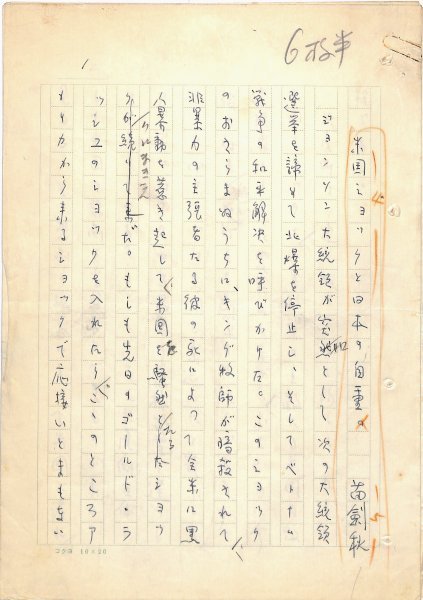 6枚半
米国ショックと日本の自重
苗剣秋
ジョンソン大統領が突如として次の大統領
選挙を諦めて北爆を停止し、そしてベトナム
戦争の和平解決を呼びかけた。このショック
のおさまらぬうちに、キング牧師が暗殺されて
非暴力の主張者たる彼の死によって全米に黒
人暴動を惹き起して米国を騒然たらしたショッ
クが続いて来だ。もしも先日のゴールド・ラ
ッシュのショックを入れたら、このところア
メリカから来るショックで応接いとまもない
コクヨ 10×20